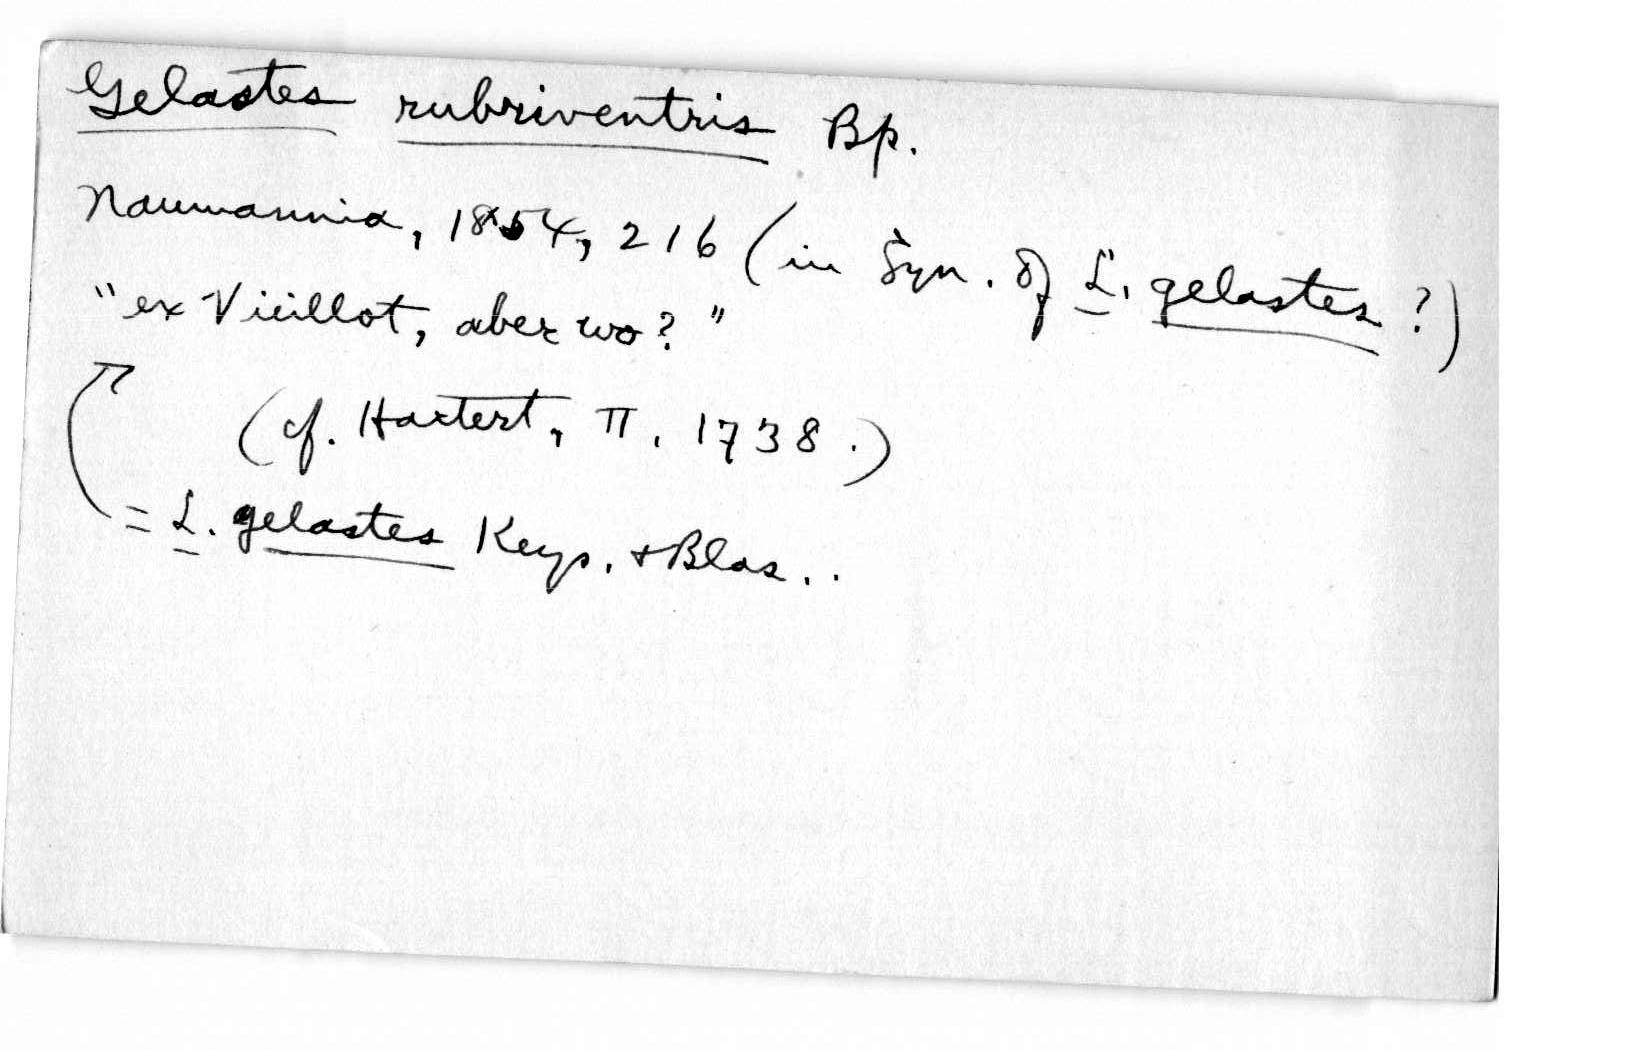 Gelastes rubriventris Bp.
Naumannia, 1854, 216 (in Syn. of L. gelastes ?)
"ex Vieillot, aber wo? "
(cf. Hartert, II. 1738.)
= L. gelastes Keys. + Blas..